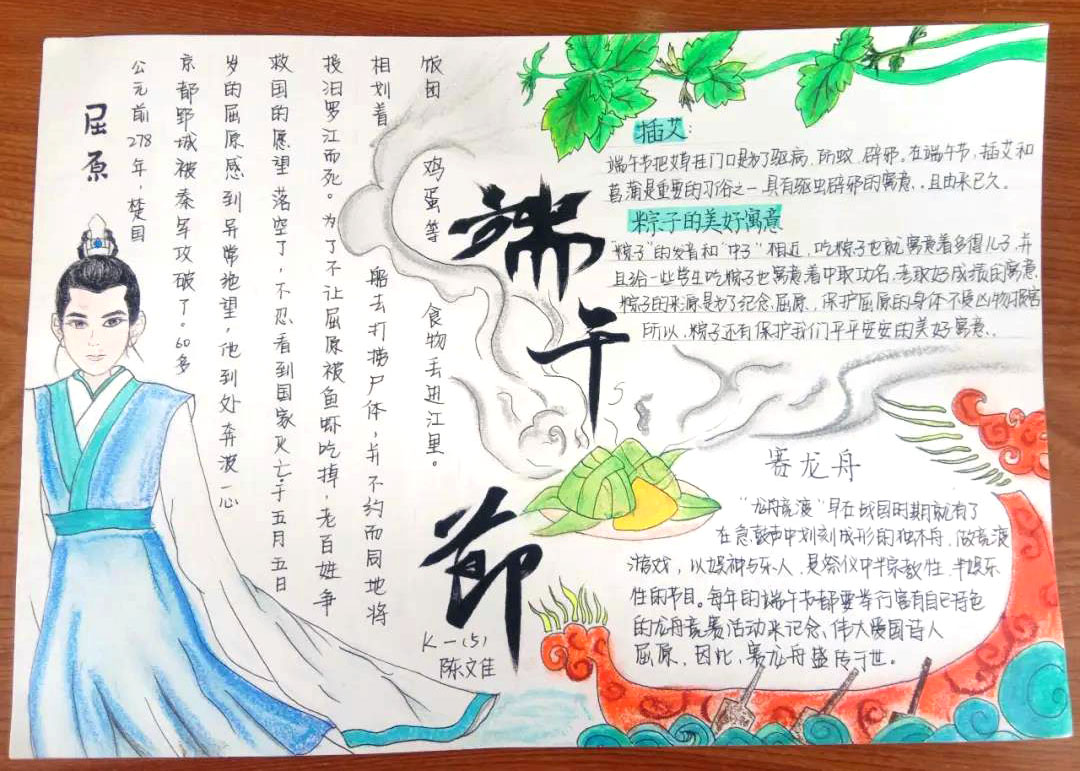 屈原
公元前278年，楚国
京都野城被秦军攻破了。60多
岁的屈原感到异常绝望，他到处奔波一心
救国的愿望落空了，不忍看到国家灭亡于五月五日
投汨罗江而死。为了不让屈原被鱼虾吃掉，老百姓争
相划着船去打捞尸体，并不约而同地将
饭团 鸡蛋等 食物丢进江里。
端午节
K一(5)
陈文佳
插艾：
端午节把艾草挂门口是为了驱病、防蚊、辟邪。在端午节，插艾和
菖蒲是重要的习俗之一具有驱虫辟邪的寓意，且由来已久。
粽子的美好寓意
"粽子"的发音和"中子"相近，吃粽子也就寓意着多得儿子，并
且给一些学生吃粽子也寓意着中取功名，考取好成绩的寓意，
粽子的来源是为了纪念屈原，保护屈原的身体不受凶物损害
所以，粽子还有保护我们平平安安的美好寓意。
赛龙舟
"龙舟竞渡"早在战国时期就有了
在急鼓声中划刻成形的独木舟，做竞渡
游戏，以娱神与乐人，是祭仪中半宗教性、半娱乐
性的节目。每年的端午节都要举行富有自己特色
的龙舟竞赛活动来记念、伟大爱国诗人
屈原，因此，赛龙舟盛传于世。